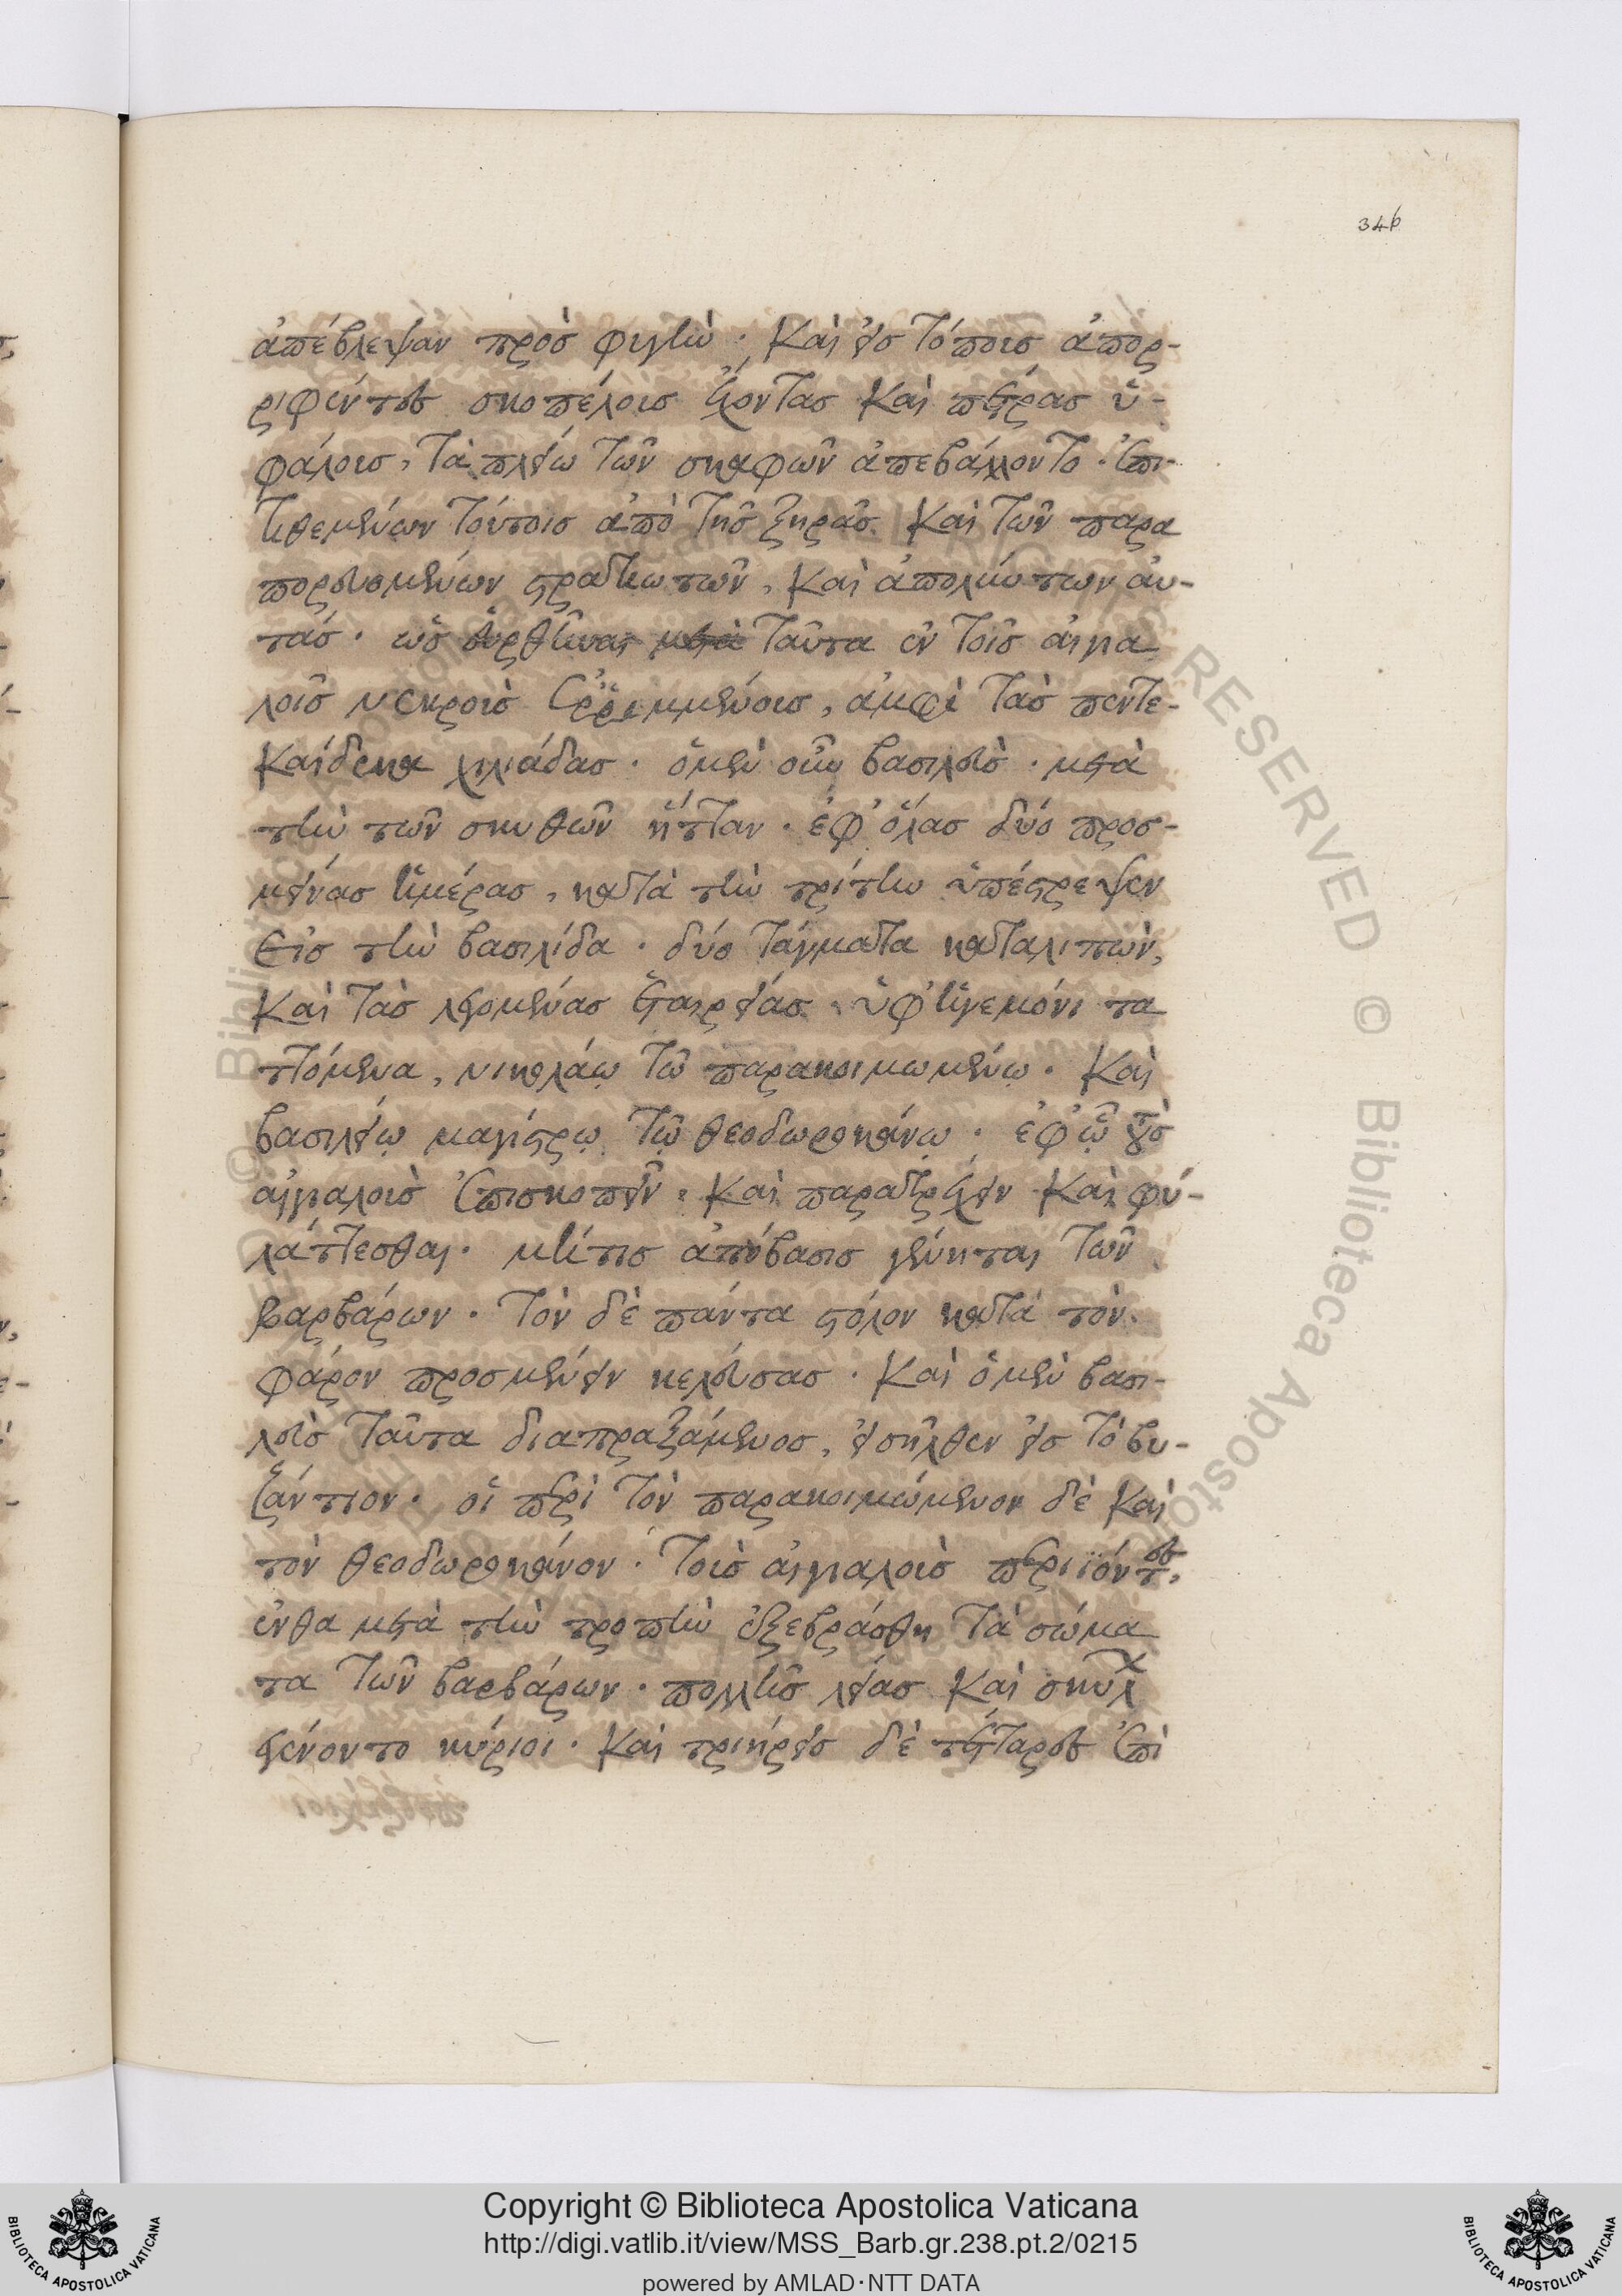 346
ἀπέβλεψαν πρὸς φυγὴν· καὶ εἰς τόποις ἀπορ-
ριφέντες σκοπέλοις ἔχοντας καὶ πέτρας ὑ-
φάλοις, τὰ πλείω τῶν σκαφῶν ἀπεβάλλοντο· ἐπι-
τιθεμένων τούτοις ἀπὸ τῆς ξηρᾶς καὶ τῶν παρα
πορευομένων στρατιωτῶν, καὶ ἀπολλύντων αὐ-
τάς· ὡς εὑρθῆναι μετὰ ταῦτα ἐν τοῖς αἰγια
λοῖς νεκροὶς ἐρριμμένοις, ἀμφὶ τὰς πεντε-
καίδεκα χιλιάδας· ὁ μὲν οὖν βασιλεὺς· μετὰ
τὴν τῶν σκυθῶν ἧτταν· ἐφ' ὅλας δύο προσ-
μείνας ἡμέρας, κατὰ τὴν τρίτην ὑπέστρεψεν
εἰς τὴν βασιλίδα· δύο τάγματα καταλιπὼν,
καὶ τὰς λεγομένας ἑταιρείας· ὑφ' ἡγεμόνι τα
ττόμενα, νικολάῳ τῷ παρακοιμωμένῳ· καὶ
βασιλείῳ μαγίστρῳ τῷ θεοδωροκάνῳ· ἐφ' ᾧ τοὺς
αἰγιαλοὶς ἐπισκοπεῖν· καὶ παρατρέχειν καὶ φυ-
λάττεσθαι· μήτις ἀπόβασις γένηται τῶν
βαρβάρων· τὸν δὲ πάντα στόλον κατὰ τὸν
φάρον προσμένειν κελεύσας· καὶ ὁ μὲν βασι-
λεὺς ταῦτα διαπραξάμενος, εἰσῆλθεν εἰς τὸ βυ-
ζάντιον· οἱ περὶ τὸν παρακοιμώμενον δὲ καὶ
τὸν θεοδωροκάνον· τοὶς αἰγιαλοὶς περιϊόντες,
ἔνθα μετὰ τὴν τροπὴν ἐξεβράσθη τὰ σώμα
τα τῶν βαρβάρων· πολλῆς λείας καὶ σκύλ
ἐγένοντο κύριοι· καὶ τριήρεις δὲ τέτταρες ἐπὶ
Copyright © Biblioteca Apostolica Vaticana
http://digi.vatlib.it/view/MSS_Barb.gr.238.pt.2/0215
powered by AMLAD·NTT DATA